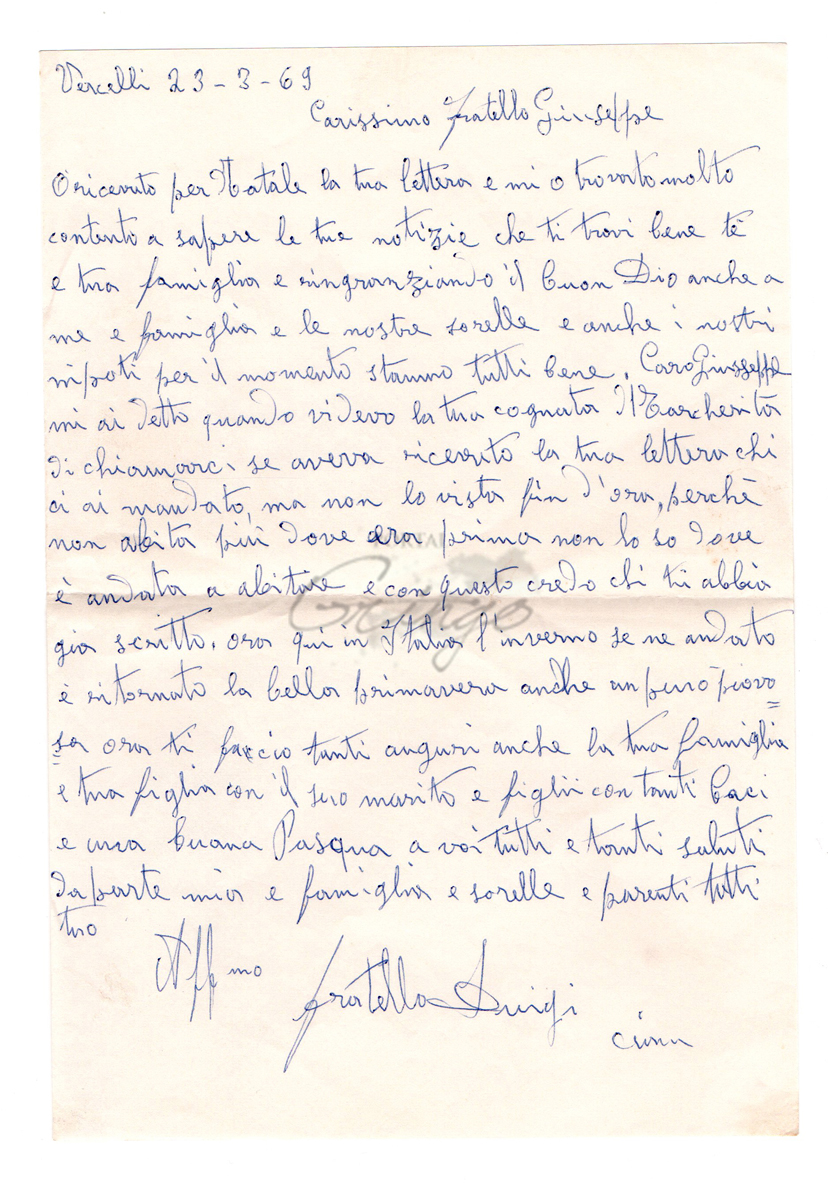 Vercelli 23-3-69
Carissimo fratello Giuseppe
O ricevuto per Natale la tua lettera e mi o trovato molto
contento a sapere le tue notizie che ti trovi bene te
e tua famiglia e ringranziando il buon Dio anche a
me e famiglia e le nostre sorelle e anche i nostri
nipoti per il momento stanno tutti bene. Caro Giusseppe
mi ai detto quando videvo la tua cognata Margherita
di chiamarci se aveva ricevuto la tua lettera chi
ci ai mandato, ma non lo vista fin d'ora, perchè
non abita più dove era prima non lo so dove
è andata a abitare e con questo credo chi ti abbia
già scritto. ora qui in Italia l'inverno se ne andato
è ritornato la bella primavera anche un puro piovo=
sa ora ti faccio tanti auguri anche la tua famiglia
e tua figlia con il suo marito e figlii con tanti baci
e una buana Pasqua a voi tutti e tanti saluti
da parte mia e famiglia e sorelle e parenti tutti
tuo
Aff mo
fratello Luigi
Gringo